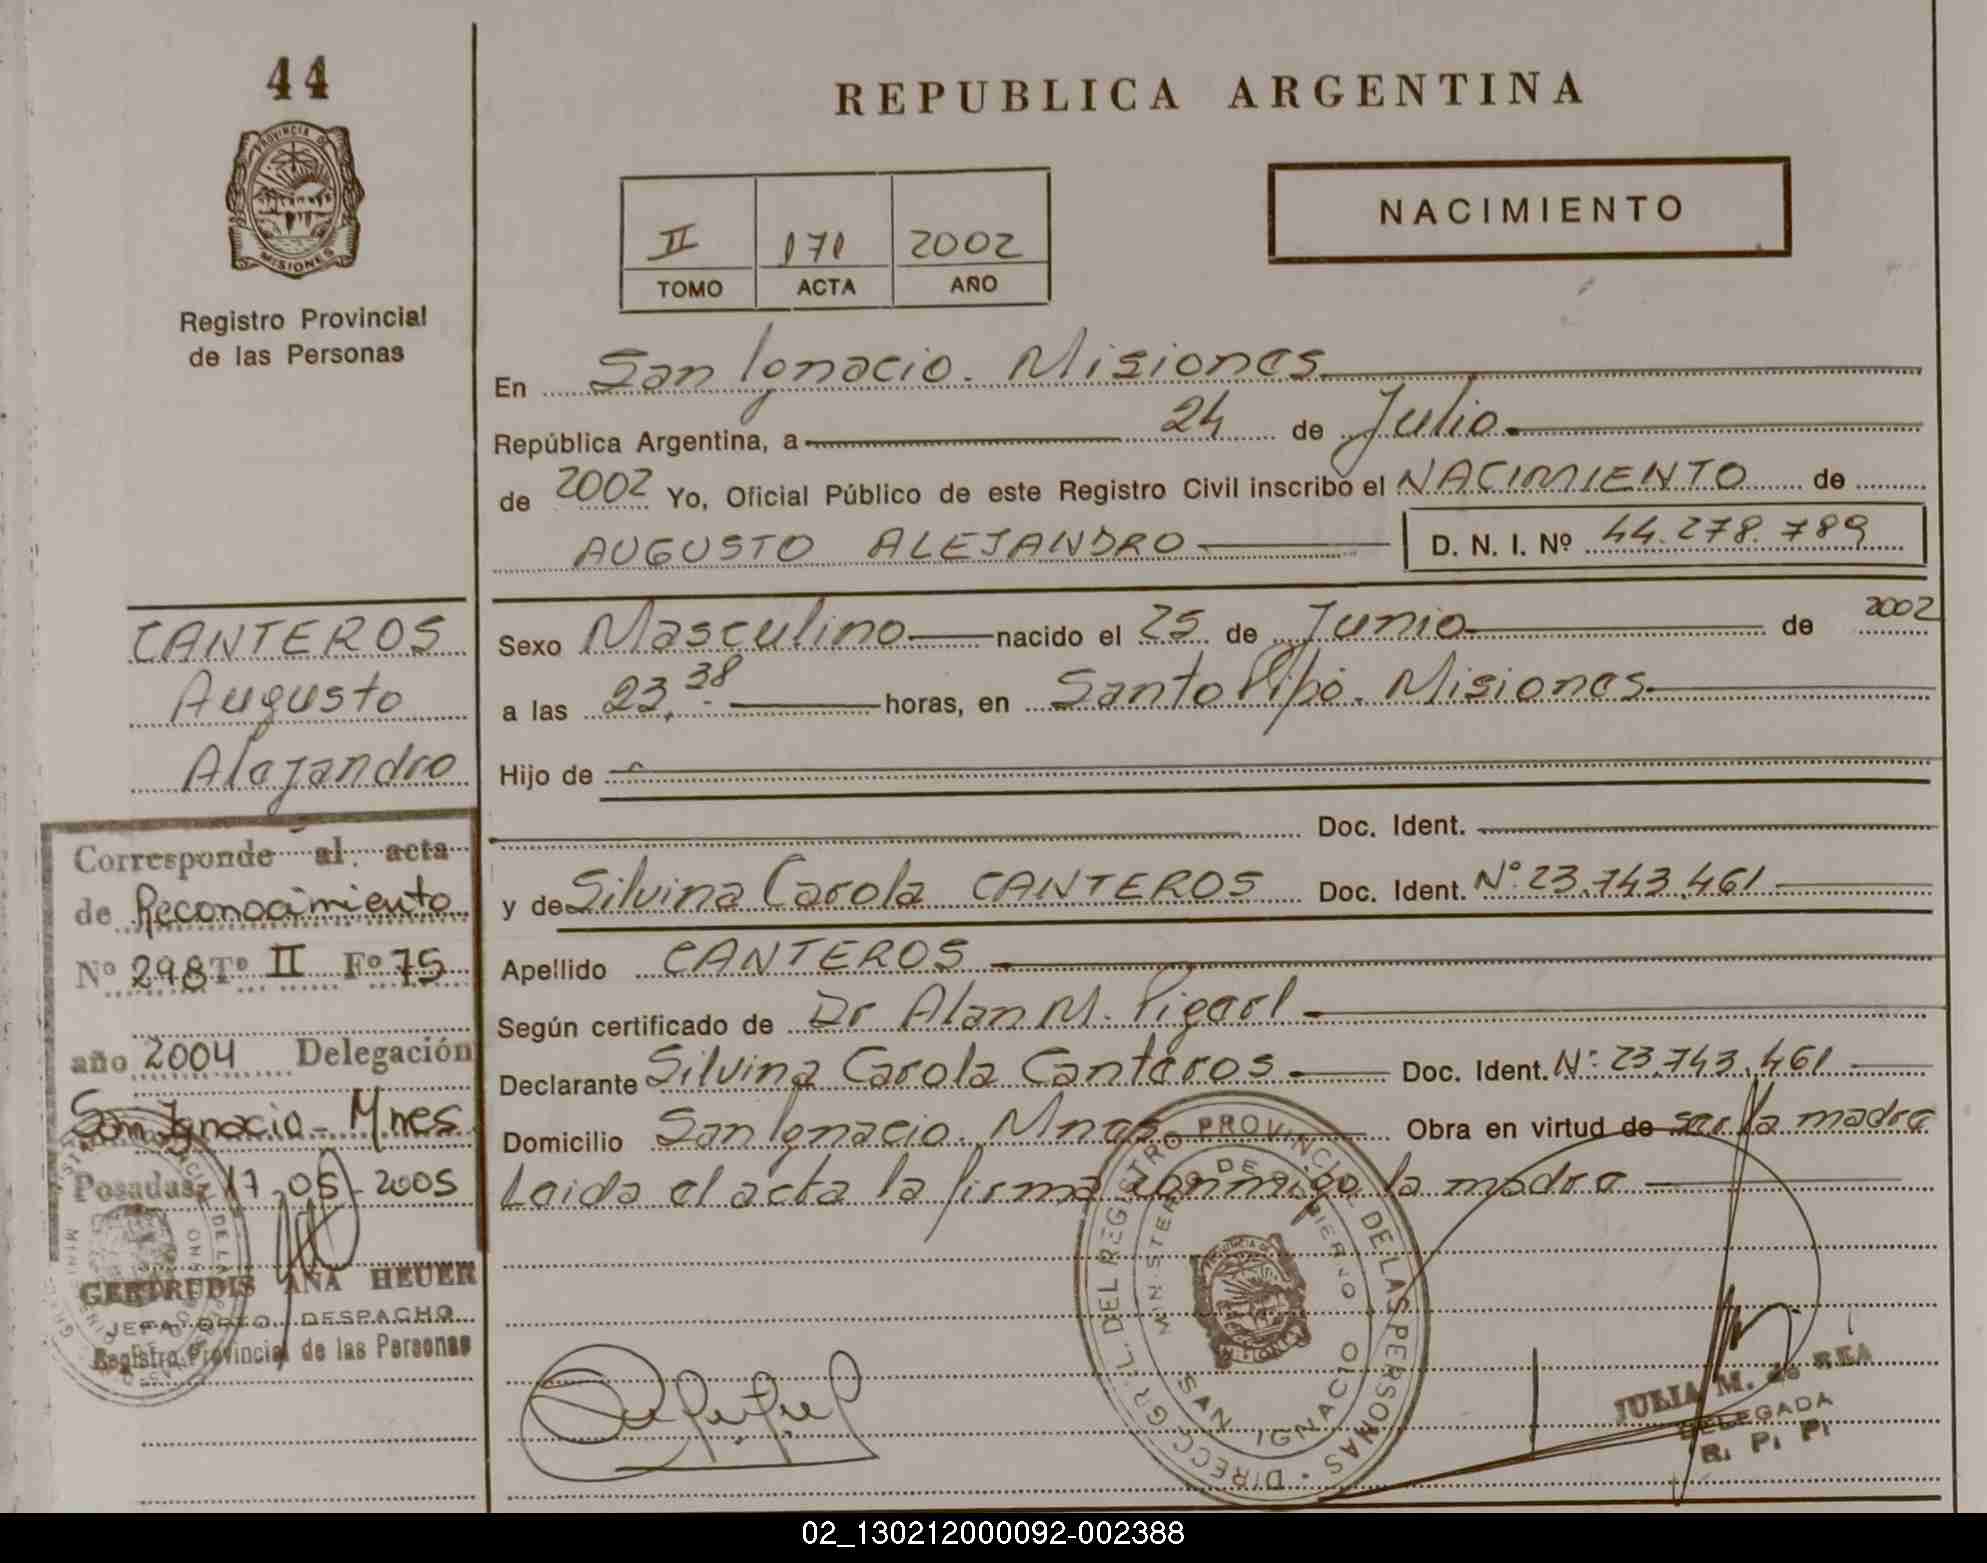 44
PROVINCIA DE
MISIONES
Registro Provincial
de las Personas
REPUBLICA ARGENTINA
NACIMIENTO
II 171 2002
TOMO ACTA AÑO
En San Ignacio. Misiones
República Argentina, a 24 de Julio
de 2002 Yo, Oficial Público de este Registro Civil inscribo el NACIMIENTO de
AUGUSTO ALEJANDRO D. N. I. Nº 44.278.789
CANTEROS
Augusto
Alejandro
Sexo Masculino nacido el 25 de Junio de 2002
a las 23.38 horas, en Santo Pipó. Misiones
Hijo de
Doc. Ident.
y de Silvina Carola CANTEROS Doc. Ident. Nº 23.743.461
Apellido CANTEROS
Según certificado de Dr Alan M.
Declarante Silvina Carola Canteros Doc. Ident. Nº 23.743.461
Domicilio San Ignacio. Mnes Obra en virtud de ser la madre
Leida el acta la firma conmigo la madre
Corresponde al acta
de Reconocimiento
Nº 298 Tº II Fº 75
año 2004 Delegación
San Ignacio - Mnes
Posadas, 17-05-2005
GERTRUDIS ANA HEUER
JEFA DPTO. DESPACHO
Registro Provincial de las Personas
DIRECC. GRL. DEL REGISTRO PROVINCIAL DE LAS PERSONAS
MINISTERIO DE GOBIERNO
SAN IGNACIO
JULIA M. de REA
DELEGADA
R. P. P.
02_130212000092-002388